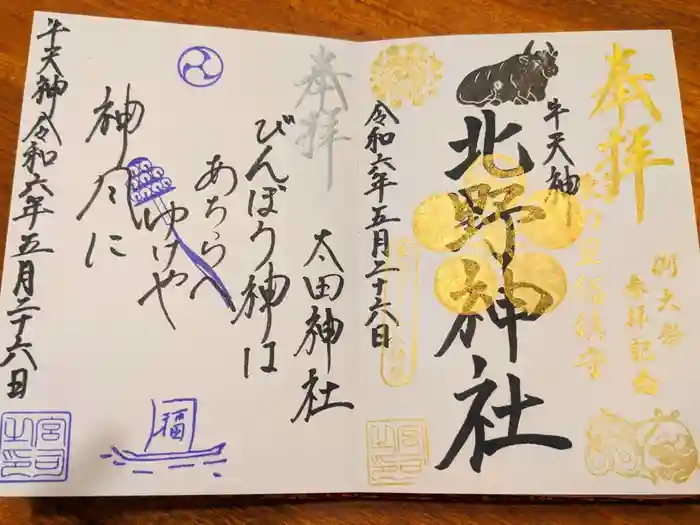 奉拝
例大祭
参拝記念
牛天神
北野神社
令和六年五月二十六日
奉拝
太田神社
びんぼう神は
あちらへ
ゆけや
神風に
福
牛天神 令和六年五月二十六日
宮司之印